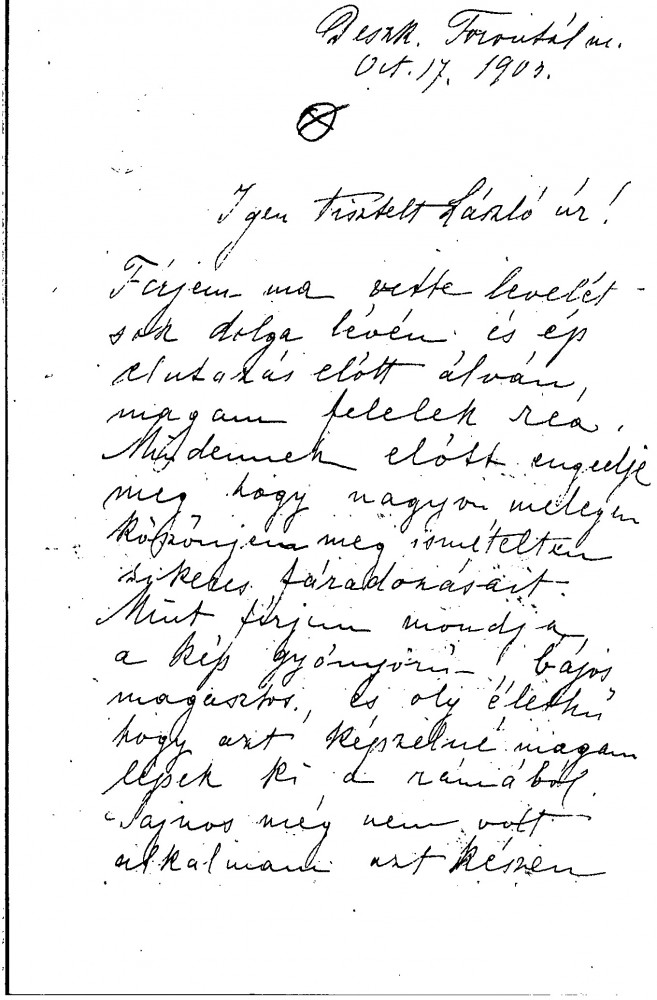 Deszk. Torontál m.
Oct. 17. 1903.
Igen tisztelt László úr!
Férjem ma vette levelét -
sok dolga lévén és ép
elutazás előtt álván,
magam felelek reá.
Mindennek előtt engedje
meg hogy nagyon melegen
köszönjem meg ismételten
sikeres fáradozásait.
Mint férjem mondja,
a kép gyönyörű - bájos
magasztos, és oly élethű
hogy azt képzelné magam
lépek ki a rámából.
Sajnos még nem volt
alkalmam azt készen